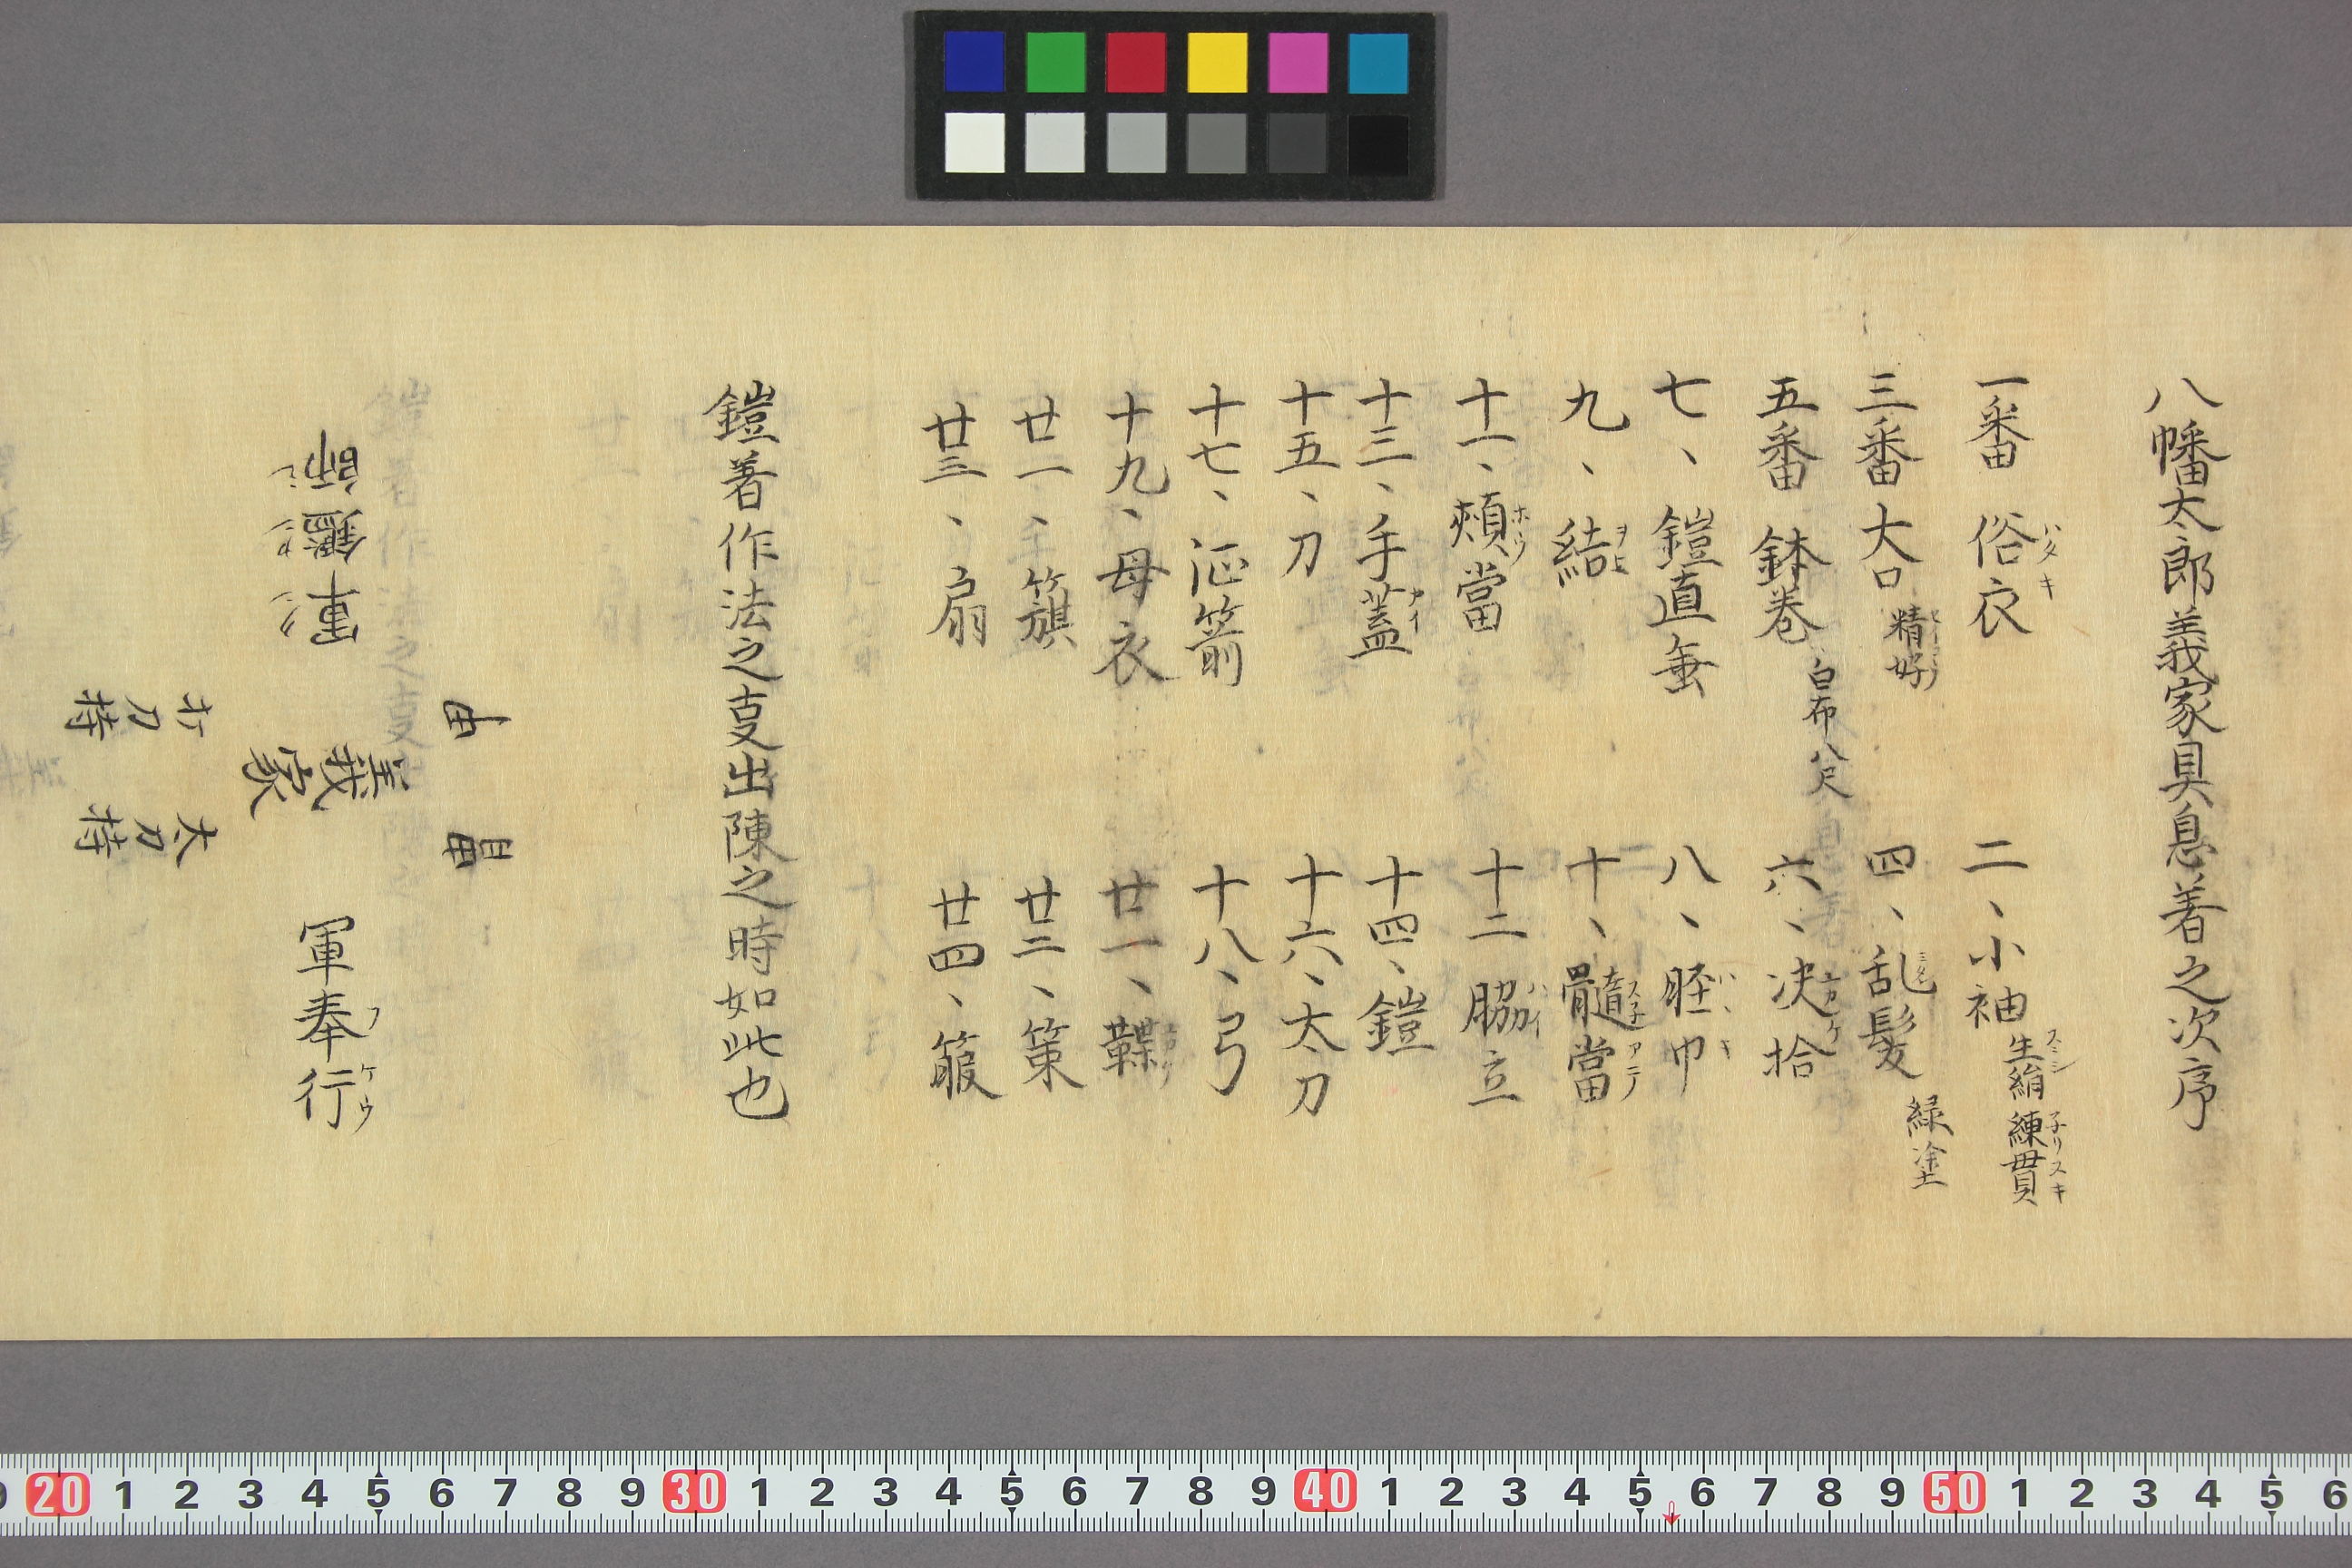 八幡太郎義家具息著之次序
一番 俗衣 ハタキ
二、小袖 生絹 スヽシ 練貫 子リヌキ
三番 大口 精好
四、乱髪 緑塗
五番 鉢巻 白布八尺
六、决拾
七、鎧直垂
八、脛巾 ハヽキ
九、結 ヲヒ
十、髄當 スネアテ
十一、頬當 ホウ
十二 脇立 ハイ
十三、手蓋 アイ
十四、鎧
十五、刀
十六、太刀
十七、征箭
十八、弓
十九、母衣
廿一、鞢
廿一、手籏
廿二、策
廿三、扇
廿四、箙
鎧著作法之㕝出陳之時如此也
由
昌
師鑑事
義家
軍奉行 フ ケウ
打刀持
太刀持
20 1 2 3 4 5 6 7 8 9 30 1 2 3 4 5 6 7 8 9 40 1 2 3 4 5 6 7 8 9 50 1 2 3 4 5 6